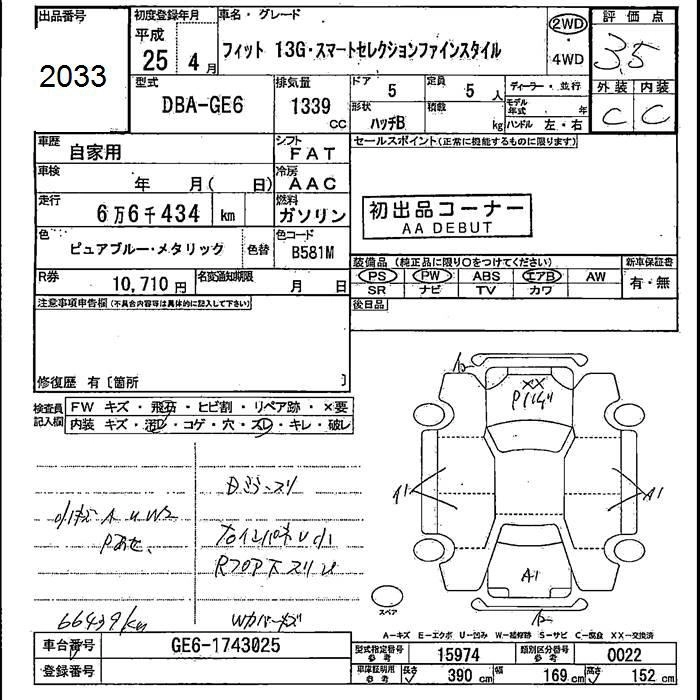 出品番号
2033
初度登録年月
平成
25年 4月
車名・グレード
フィット 13G・スマートセレクションファインスタイル
2WD
・
4WD
評価点
3.5
外装 内装
C C
型式
DBA-GE6
排気量
1339 cc
ドア 5
形状 ハッチB
定員 5 人
積載 kg
ディーラー・並行
モデル年式 年
ハンドル 左・右
車歴 自家用
シフト FAT
車検 年 月( 日)
冷房 AAC
走行 6万6千434 km
燃料 ガソリン
色 ピュアブルー・メタリック 色替
色コード B581M
R券 10,710円
名変通知期限 月 日
セールスポイント(正常に機能するものに限ります)
初出品コーナー
AA DEBUT
装備品(純正品に限り○をつけてください) 新車保証書
PS PW ABS エアB AW 有・無
SR ナビ TV カワ
後日品
注意事項申告欄(不具合内容等は具体的に記入して下さい)
修復歴 有〔箇所 〕
検査員記入欄
FW キズ・飛石・ヒビ割・リペア跡・×要
内装 キズ・汚レ・コゲ・穴・スレ・キレ・破レ
XX
A1 A1
A1
スペア
66439km
A-キズ E-エクボ U-凹み W-補修跡 S-サビ C-腐食 XX-交換済
車台番号 GE6-1743025
登録番号
型式指定番号 参考 15974
類別区分番号 参考 0022
車庫証明用 参考 長さ 390 cm 幅 169 cm 高さ 152 cm